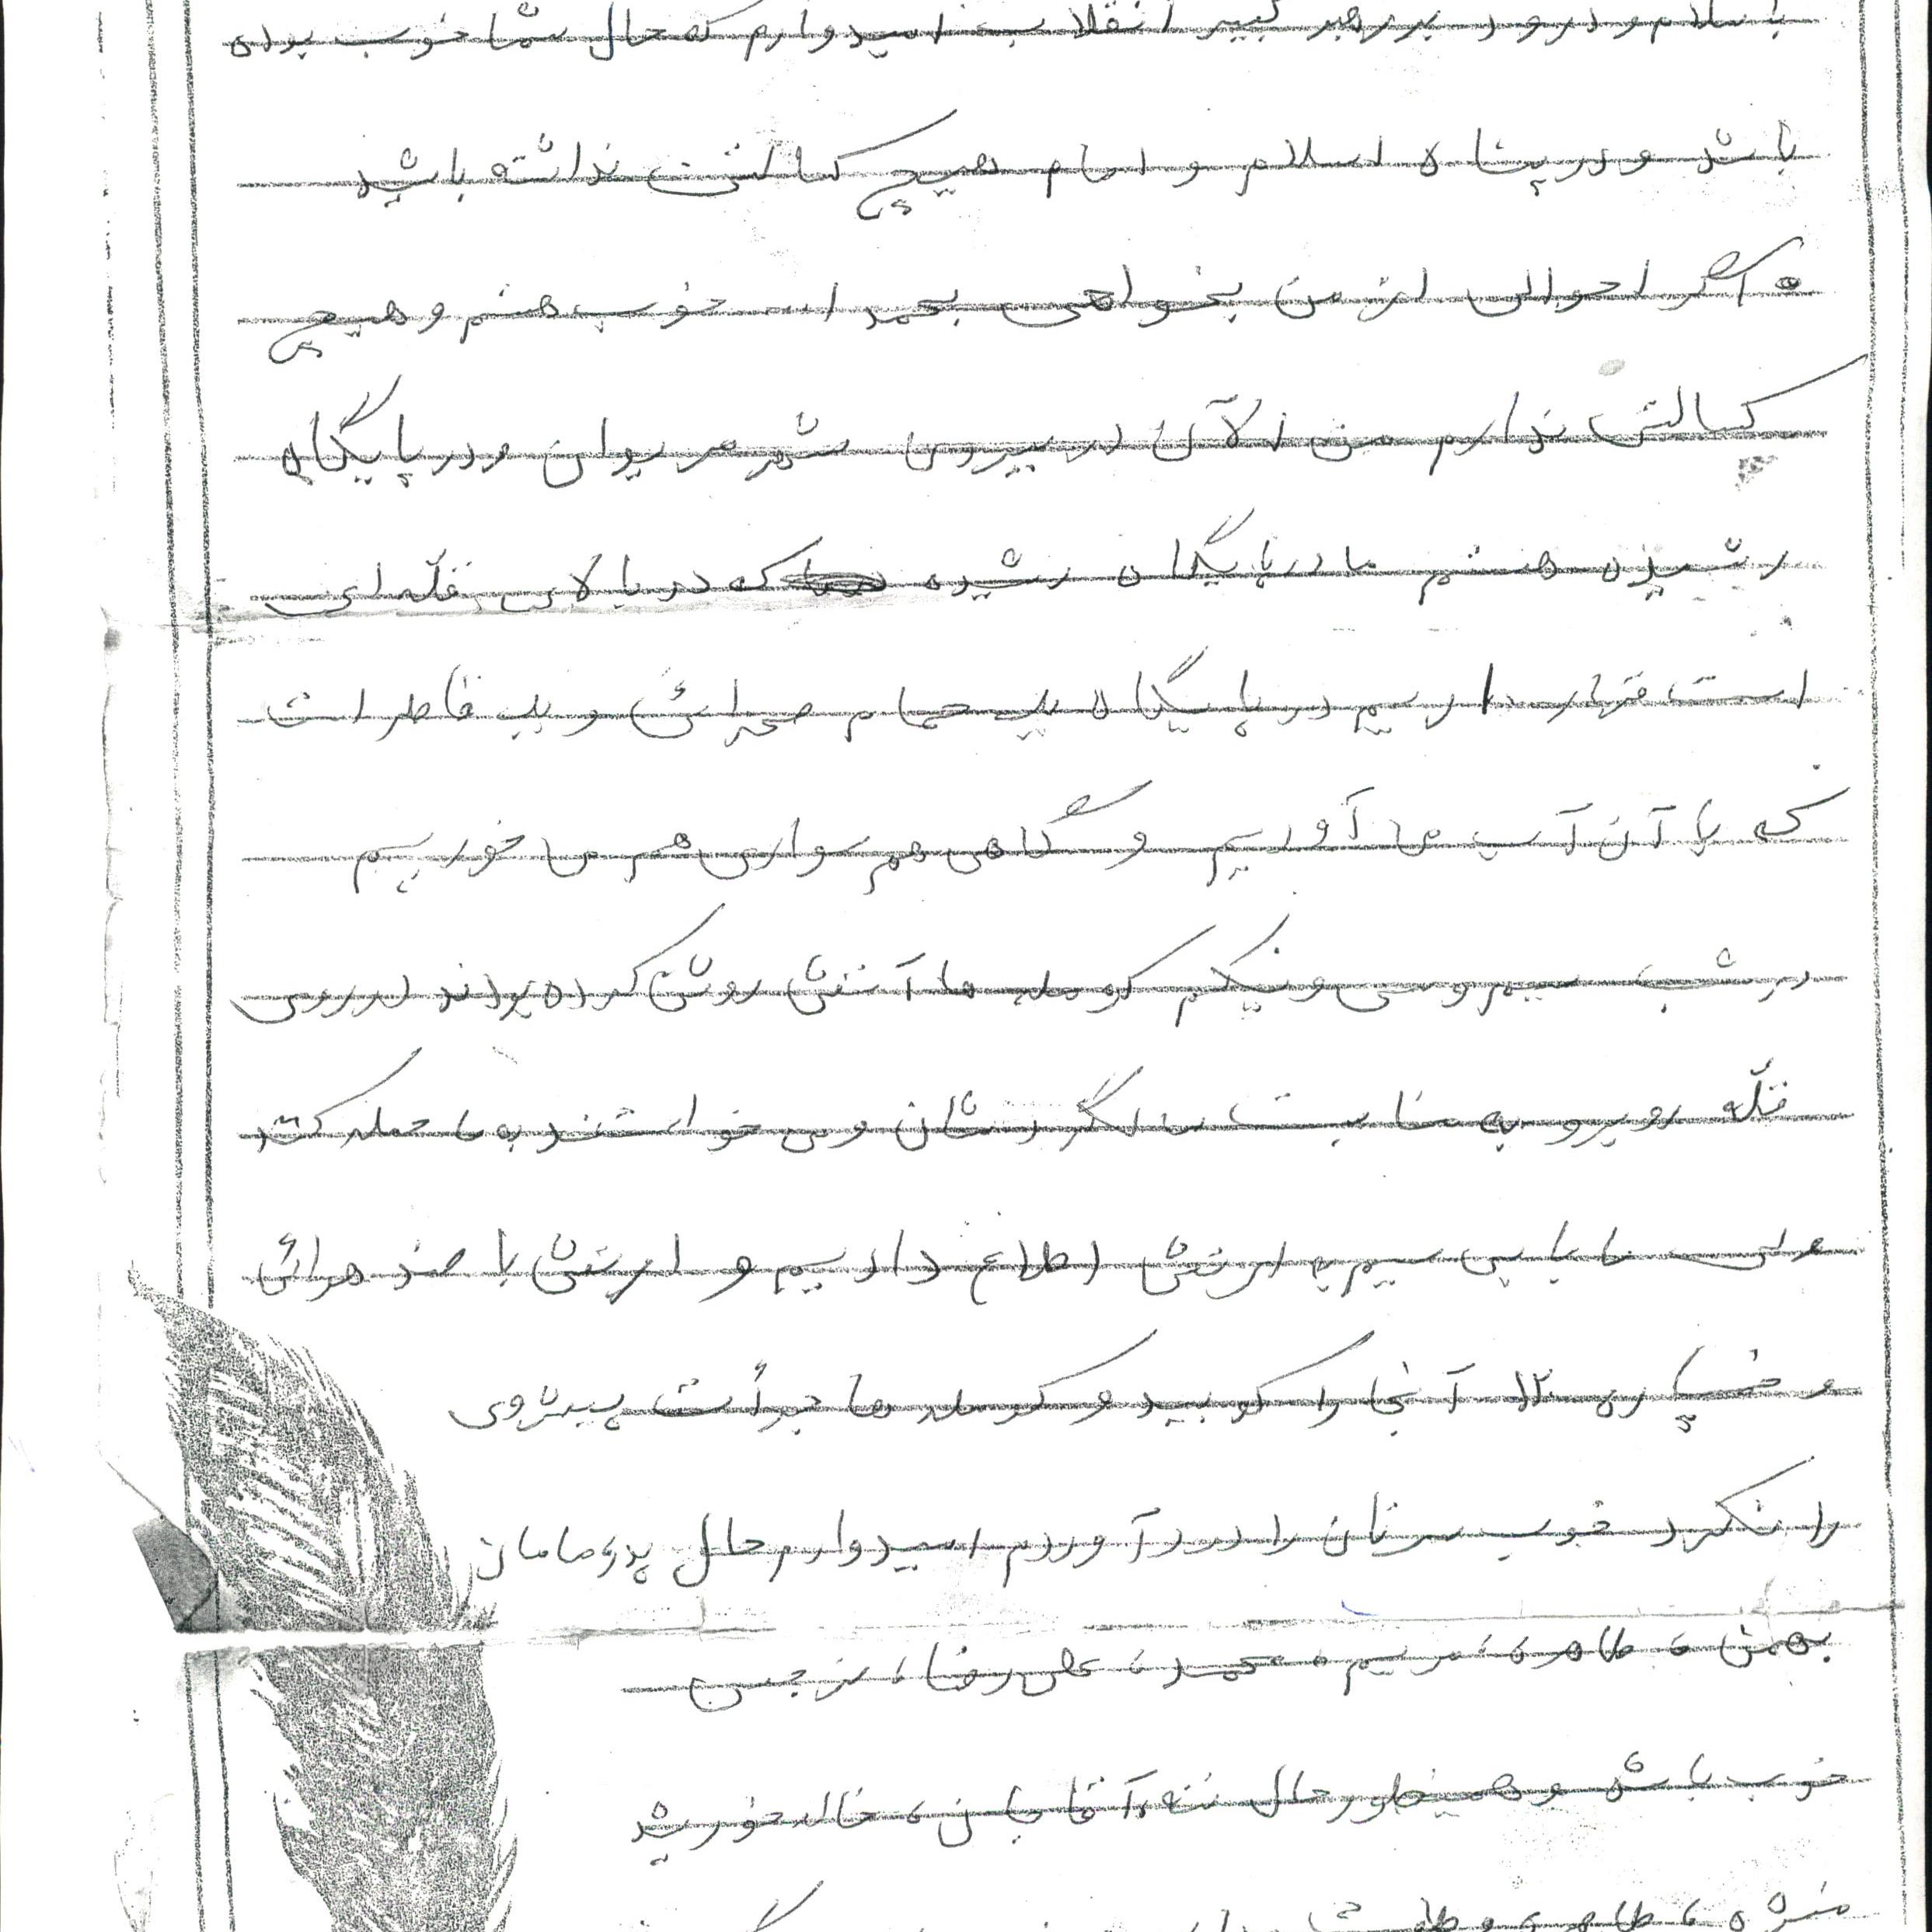 با سلام و درود بر رهبر کبیر انقلاب امیدوارم که حال شما خوب بوده
باشد و در پناه اسلام و امام هیچ کسالتی نداشته باشید
اگر احوالی از من بخواهی بحمد اله خوب هستم و هیچ
کسالتی ندارم من الآن در بیرون شهر مریوان و در پایگاه
رشیده هستم ما در پایگاه رشیده که در بالای قلّه ای
است قرار داریم در پایگاه یک حمام صحرائی و یک قاطر است
که با آن آب می آوریم و گاهی هم سواری هم می خوریم
در شب سی و یکم کومله ها آتش روشن کرده بودند در روی
قلّه روبرو به مناسبت سالگردشان و می خواستند به ما حمله کنند
ولی ما با بی سیم به ارتش اطلاع دادیم و ارتش با ضد هوائی
و خمپاره ۱۲۰ آنجا را کوبید و کومله ها جرأت پیشروی
را نکرد خوب سرتان را درد آوردم امیدوارم حال پدر، مامان
بهمن، طاهره، مریم، محمد، علی رضا، نرجس
خوب باشد و همینطور حال ننه، آقا جان، خاله خورشید
منیژه، طاهره و